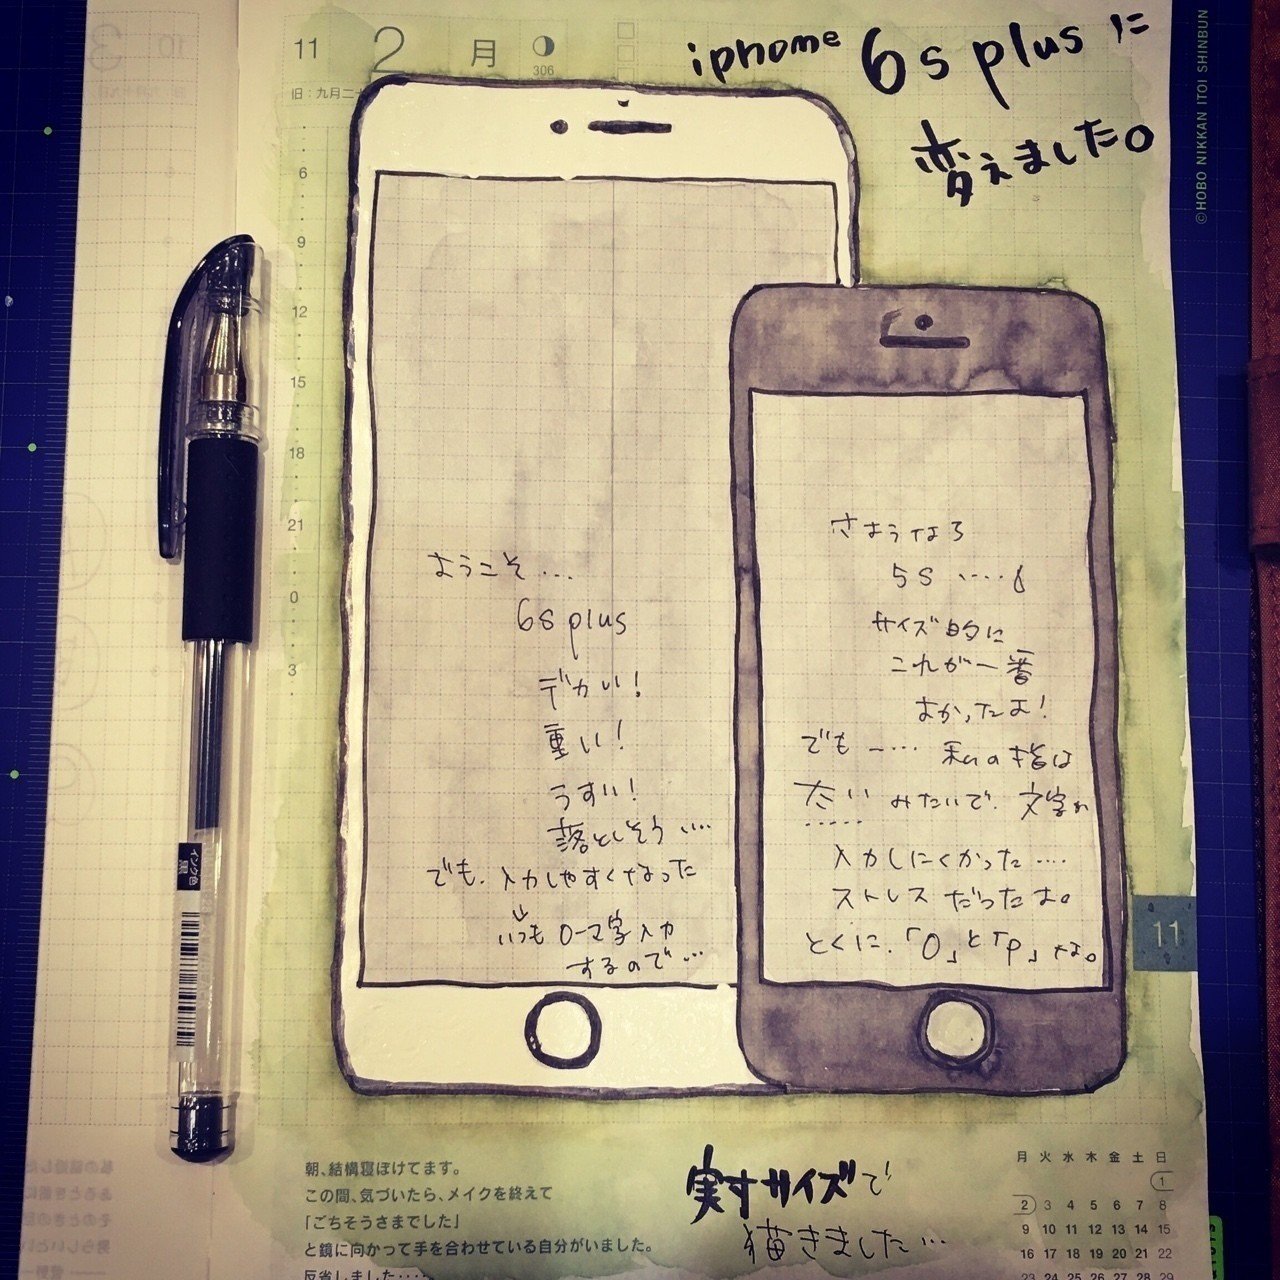 11 2 月 306
旧：九月二
iphone 6s plus に
変えました。
©HOBO NIKKAN ITOI SHINBUN
6
9
12
15
18
21
0
3
ようこそ…
6s plus
デカい！
重い！
うすい！
落としそう….
でも、入力しやすくなった
いつもローマ字入力
するので…
さようなら
5s ….
サイズ的に
これが一番
よかったよ！
でも ー… 私の指は
太い みたいで、文字が
入力しにくかった….
ストレスだったよ。
とくに、「O」と「P」な。
インク色
黒
11
朝、結構寝ぼけてます。
この間、気づいたら、メイクを終えて
「ごちそうさまでした」
と鏡に向かって手を合わせている自分がいました。
反省しました・・・・
実寸サイズで
描きました…
月 火 水 木 金 土 日
1
2 3 4 5 6 7 8
9 10 11 12 13 14 15
16 17 18 19 20 21 22
23 24 25 26 27 28 29